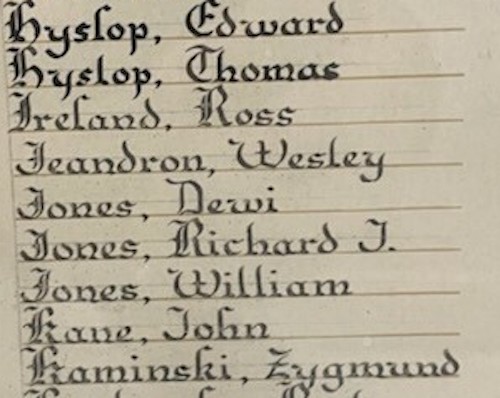 Hyslop, Edward
Hyslop, Thomas
Ireland, Ross
Jeandron, Wesley
Jones, Dewi
Jones, Richard J.
Jones, William
Kane, John
Kaminski, Zygmund